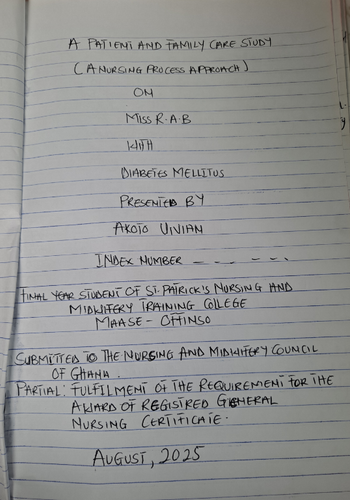 A PATIENT AND FAMILY CARE STUDY
(A NURSING PROCESS APPROACH)
ON
MISS R.A.B
WITH
DIABETES MELLITUS
PRESENTED BY
AKOTO VIVIAN
INDEX NUMBER - - - - - -
FINAL YEAR STUDENT OF ST. PATRICK'S NURSING AND
MIDWIFERY TRAINING COLLEGE
MAASE - OFFINSO
SUBMITTED TO THE NURSING AND MIDWIFERY COUNCIL
OF GHANA.
PARTIAL: FULFILMENT OF THE REQUIREMENT FOR THE
AWARD OF REGISTRED GENERAL
NURSING CERTIFICATE.
AUGUST, 2025